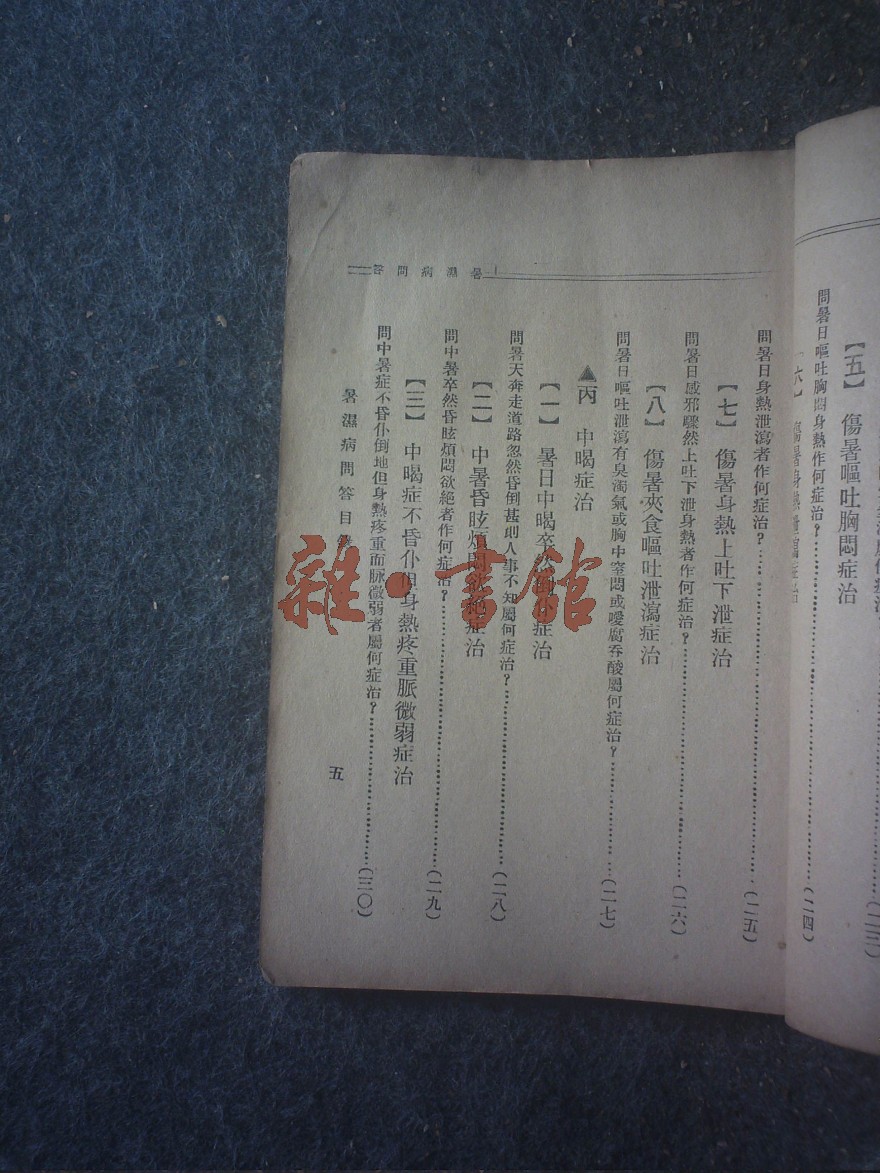 (二三)
【五】 傷暑嘔吐胸悶症治
問暑日嘔吐胸悶身熱作何症治?……(二四)
【六】 傷暑身熱泄瀉症治
暑濕病問答
問暑日身熱泄瀉者作何症治?……(二五)
【七】 傷暑身熱上吐下泄症治
問暑日感邪驟然上吐下泄身熱者作何症治?……(二六)
【八】 傷暑夾食嘔吐泄瀉症治
問暑日嘔吐泄瀉有臭濁氣或胸中窒悶或噯腐吞酸屬何症治?……(二七)
▲丙 中喝症治
【一】 暑日中喝卒然倒仆症治
問暑天奔走道路忽然昏倒甚則人事不知屬何症治?……(二八)
【二】 中暑昏眩煩悶欲絕症治
問中暑卒然昏眩煩悶欲絕者作何症治?……(二九)
【三】 中喝症不昏仆但身熱疼重脈微弱症治
問中暑症不昏仆倒地但身熱疼重而脈微弱者屬何症治?……(三〇)
暑濕病問答目錄
五
雜·書館